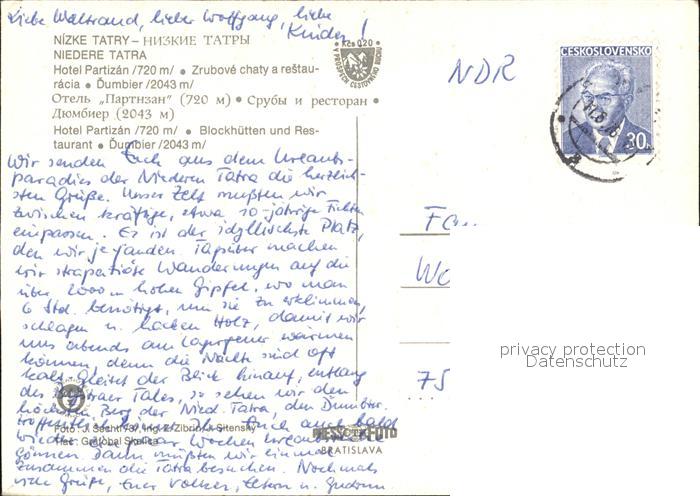 Liebe Waltraud, lieber Wolfgang, liebe
Kinder!
NÍZKE TATRY – НИЗКИЕ ТАТРЫ
NIEDERE TATRA
Hotel Partizán /720 m/ • Zrubové chaty a reštau-
rácia • Ďumbier /2043 m/
Отель „Партизан" (720 м) • Срубы и ресторан •
Дюмбиер (2043 м)
Hotel Partizán /720 m/ • Blockhütten und Res-
taurant • Ďumbier /2043 m/
Kčs 0,20
V PROSPECH CESTOVNÉHO RUCHU
NDR
ČESKOSLOVENSKO
30h
Wir senden Euch aus dem Urlaubs-
paradies der Niederen Tatra die herzlich-
sten Grüße. Unser Zelt mußten wir
zwischen kräftige, etwa 50-jährige Fichten
einpassen. Es ist der idyllischste Platz,
den wir je fanden. Tagsüber machen
wir strapatiöse Wanderungen auf die
über 2000 m hohen Gipfel, wo man
6 Std. benötigt, um sie zu erklimmen,
schlagen u. hacken Holz, damit wir
uns abends am Lagerfeuer wärmen
können, denn die Nächte sind oft
kalt. Gleitet der Blick hinauf, entlang
des Tales, so sehen wir den
höchsten Berg der Nied. Tatra, den Ďumbier.
Ihr Euch auch bald
wieder ein paar Wochen Urlaub
gönnen. Dann müßten wir einmal
zusammen die Tatra besuchen. Nochmals
viele Grüße, Euer Volker, Eltern u. Gudrun
Foto: J. Šechtl /3/, Ing. Z. Zibrín, J. Sitenský
Tlač: Grafobal Skalica
PRESSFOTO
BRATISLAVA
Fa
Wo
75
privacy protection
Datenschutz